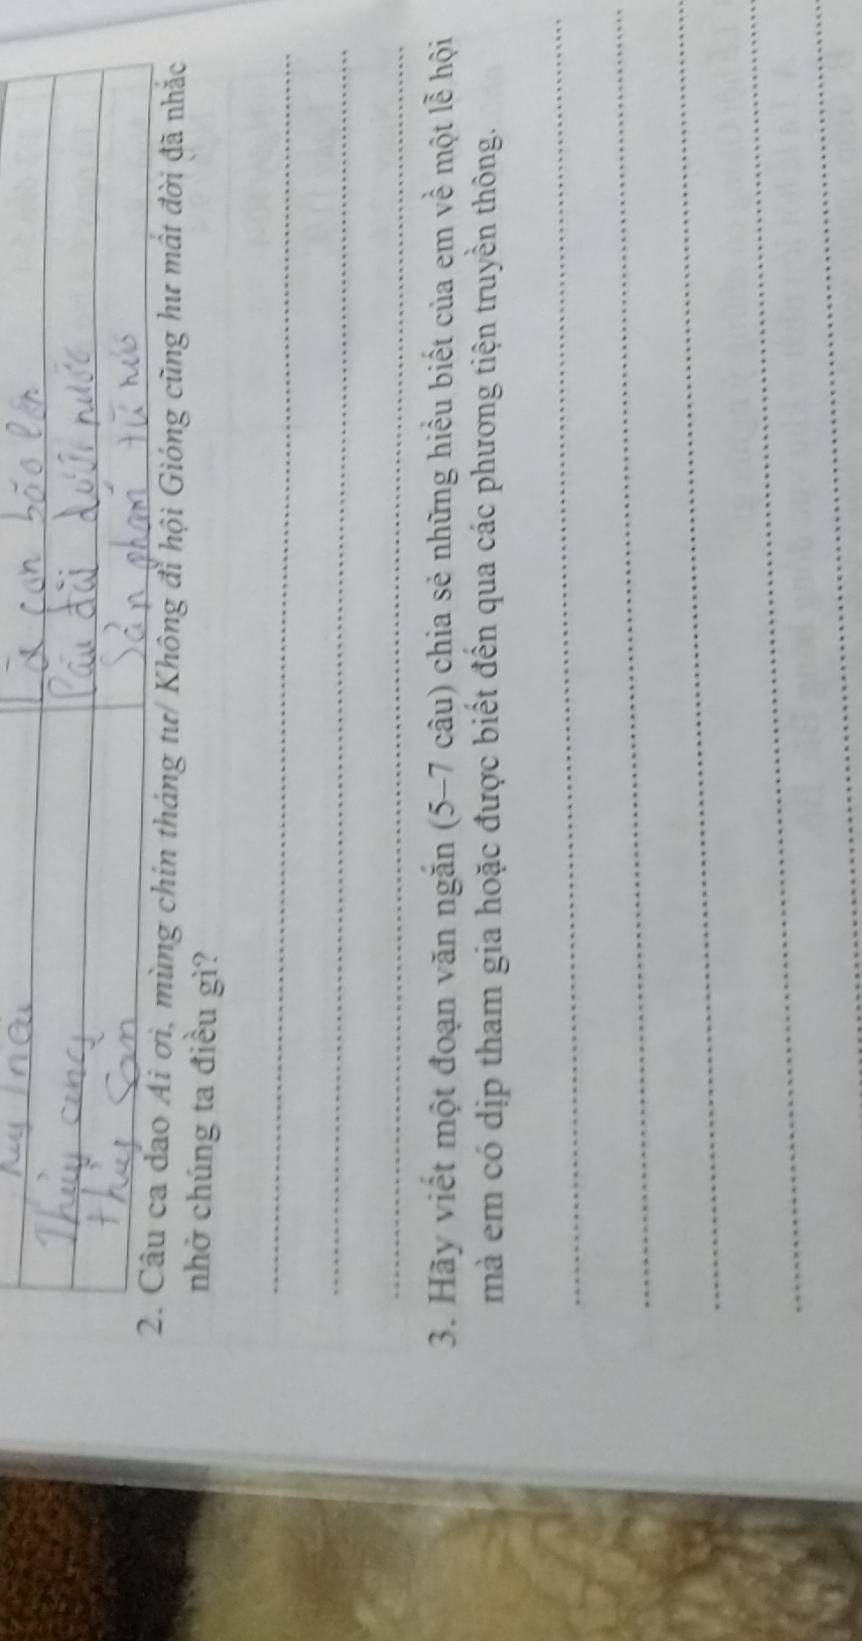 Thủy cung
Pâu đài dưới nước
thủy sản
Sản phẩm từ nước
2. Câu ca dao Ai ơi, mùng chín tháng tư/ Không đi hội Gióng cũng hư mất đời đã nhắc
nhở chúng ta điều gì?
3. Hãy viết một đoạn văn ngắn (5–7 câu) chia sẻ những hiểu biết của em về một lễ hội
mà em có dịp tham gia hoặc được biết đến qua các phương tiện truyền thông.